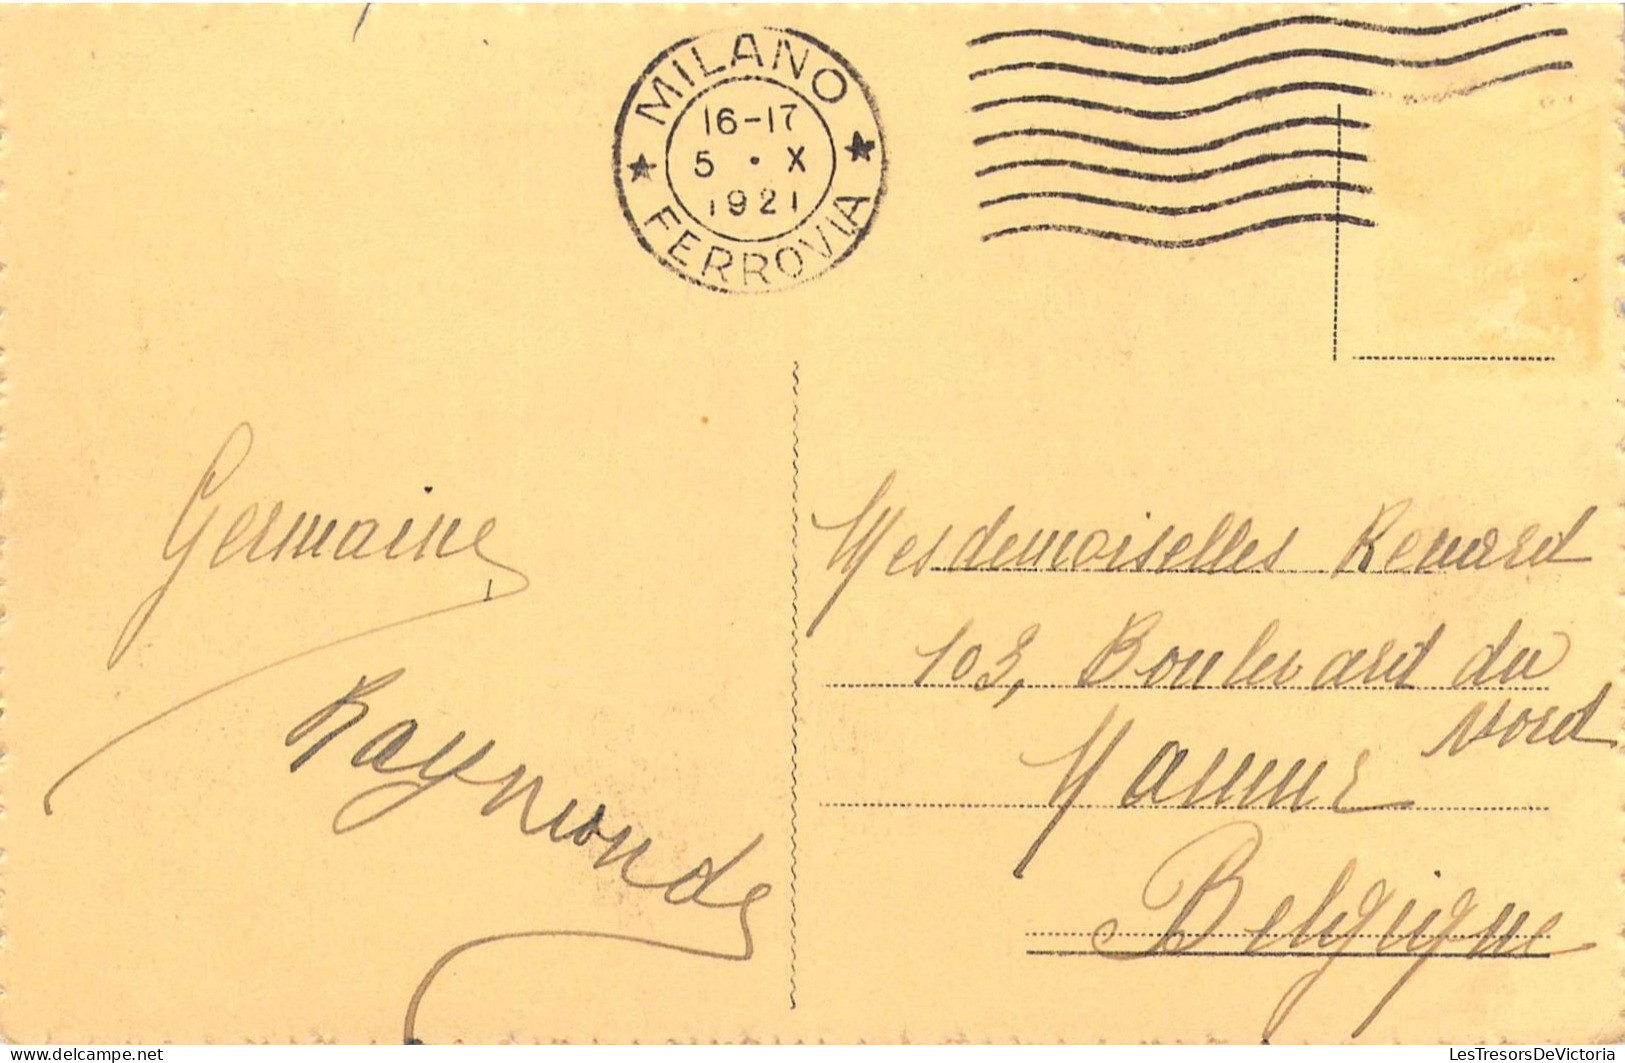 MILANO
16-17
5 · X
1921
FERROVIA
Germaine
Raymonde
Mesdemoiselles Renard
103, Boulevard du
Nord
Namur
Belgique
www.delcampe.net
LesTresorsDeVictoria